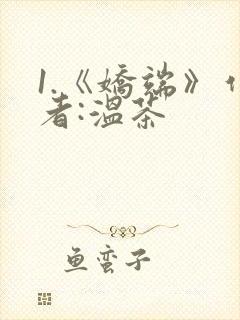 1.《娇端》作
者:温茶
鱼蛮子